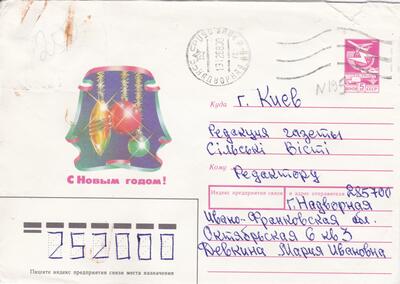 С Новым годом!
ПОЧТА СССР
5
Куда г. Киев
Редакция газеты
Сільські Вісті
Кому Редактору
Индекс предприятия связи и адрес отправителя 285700
г. Надворная
Ивано-Франковская обл.
Октябрьская 6 кв 3
Девкина Мария Ивановна
252000
Пишите индекс предприятия связи места назначения